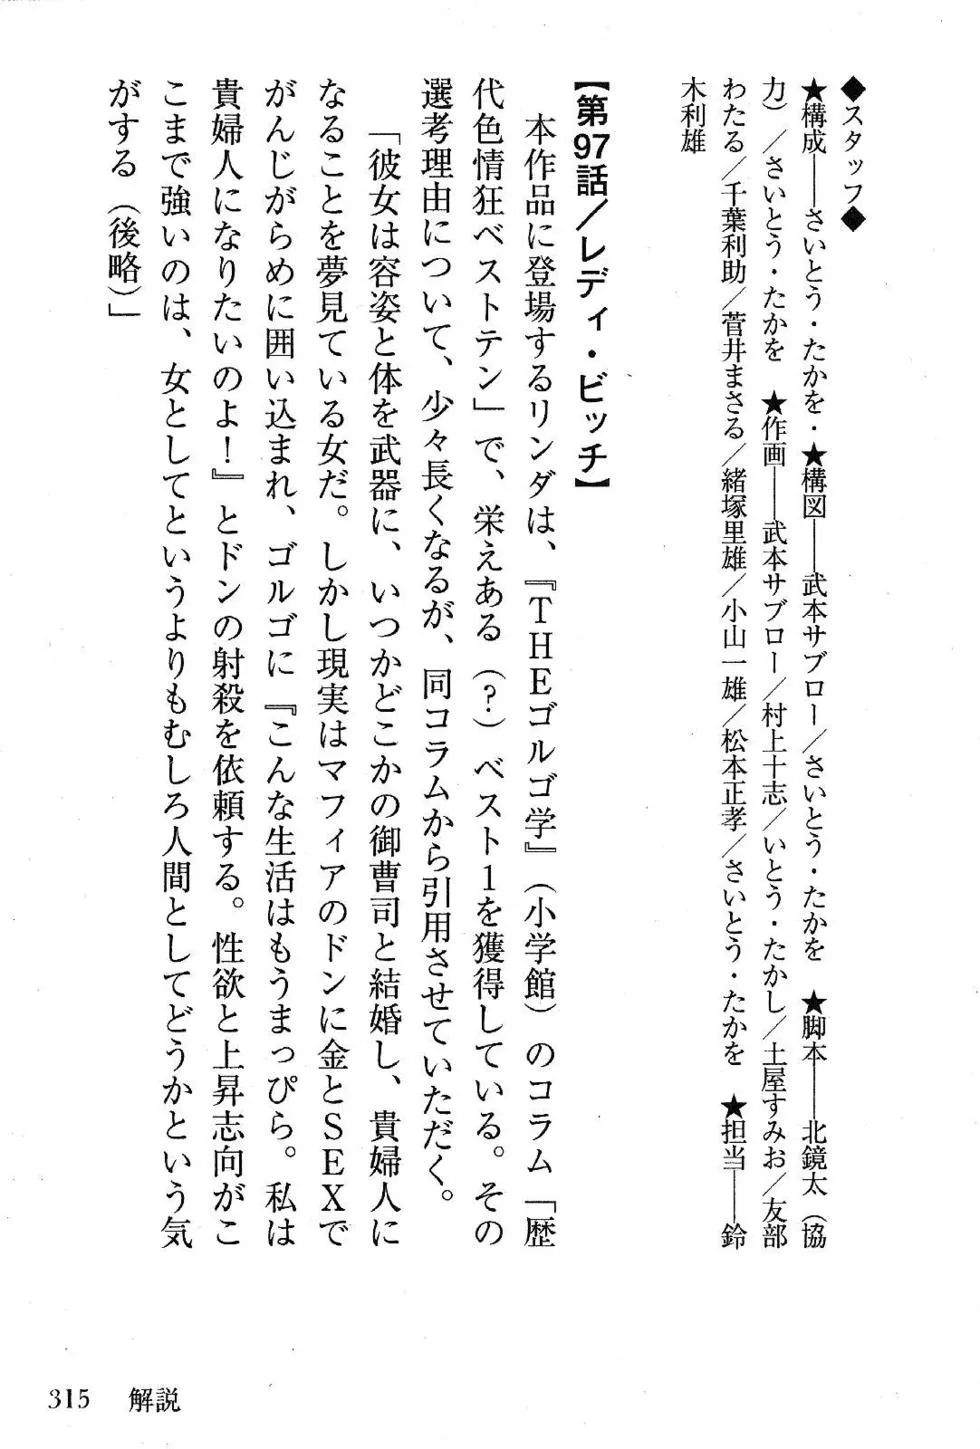 ◆スタッフ◆
★構成――さいとう・たかを・★構図――武本サブロー／さいとう・たかを　★脚本――北鏡太（協
力）／さいとう・たかを　★作画――武本サブロー／村上十志／いとう・たかし／土屋すみお／友部
わたる／千葉利助／菅井まさる／緒塚里雄／小山一雄／松本正孝／さいとう・たかを　★担当――鈴
木利雄
【第97話／レディ・ビッチ】
　本作品に登場するリンダは、『ＴＨＥゴルゴ学』（小学館）のコラム「歴
代色情狂ベストテン」で、栄えある（？）ベスト1を獲得している。その
選考理由について、少々長くなるが、同コラムから引用させていただく。
　「彼女は容姿と体を武器に、いつかどこかの御曹司と結婚し、貴婦人に
なることを夢見ている女だ。しかし現実はマフィアのドンに金とＳＥＸで
がんじがらめに囲い込まれ、ゴルゴに『こんな生活はもうまっぴら。私は
貴婦人になりたいのよ！』とドンの射殺を依頼する。性欲と上昇志向がこ
こまで強いのは、女としてというよりもむしろ人間としてどうかという気
がする（後略）」
315　解説